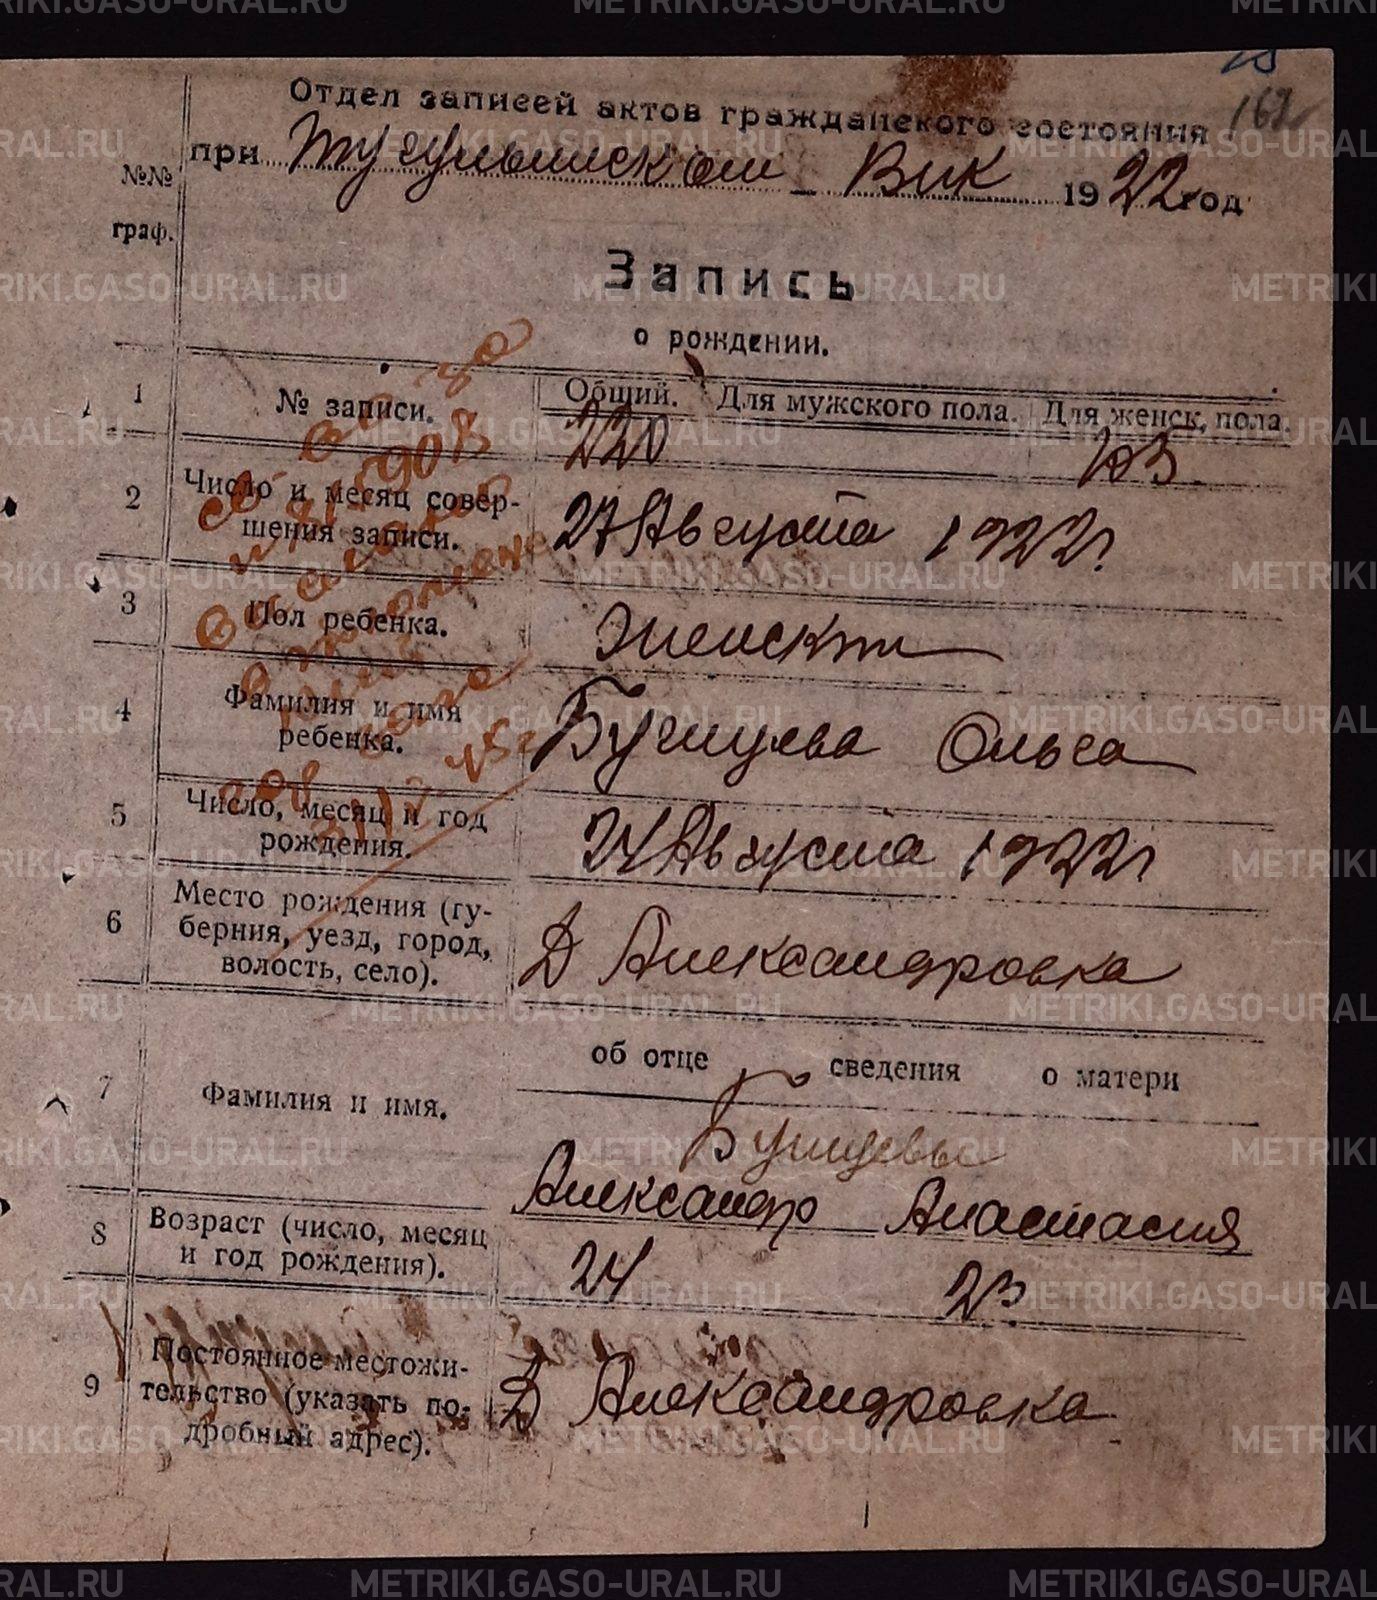 162
Отдел записей актов гражданского состояния
при Тугулымском Вик 1922 год
№№
граф.
Запись
о рождении.
1 № записи. Общий. Для мужского пола. Для женск, пола.
220 103.
2 Число и месяц совер-
шения записи. 27 Августа 1922 г
3 Пол ребенка. Женск
4 Фамилия и имя
ребенка. Ольга
5 Число, месяц и год
рождения. 24 Августа 1922 г
6 Место рождения (гу-
берния, уезд, город,
волость, село). Д Александровка
об отце сведения о матери
7 Фамилия и имя.
Александр Анастасия
8 Возраст (число, месяц
и год рождения). 24 23
9 Постоянное местожи-
тельство (указать по-
дробный адрес). Д Александровка
METRIKI.GASO-URAL.RU